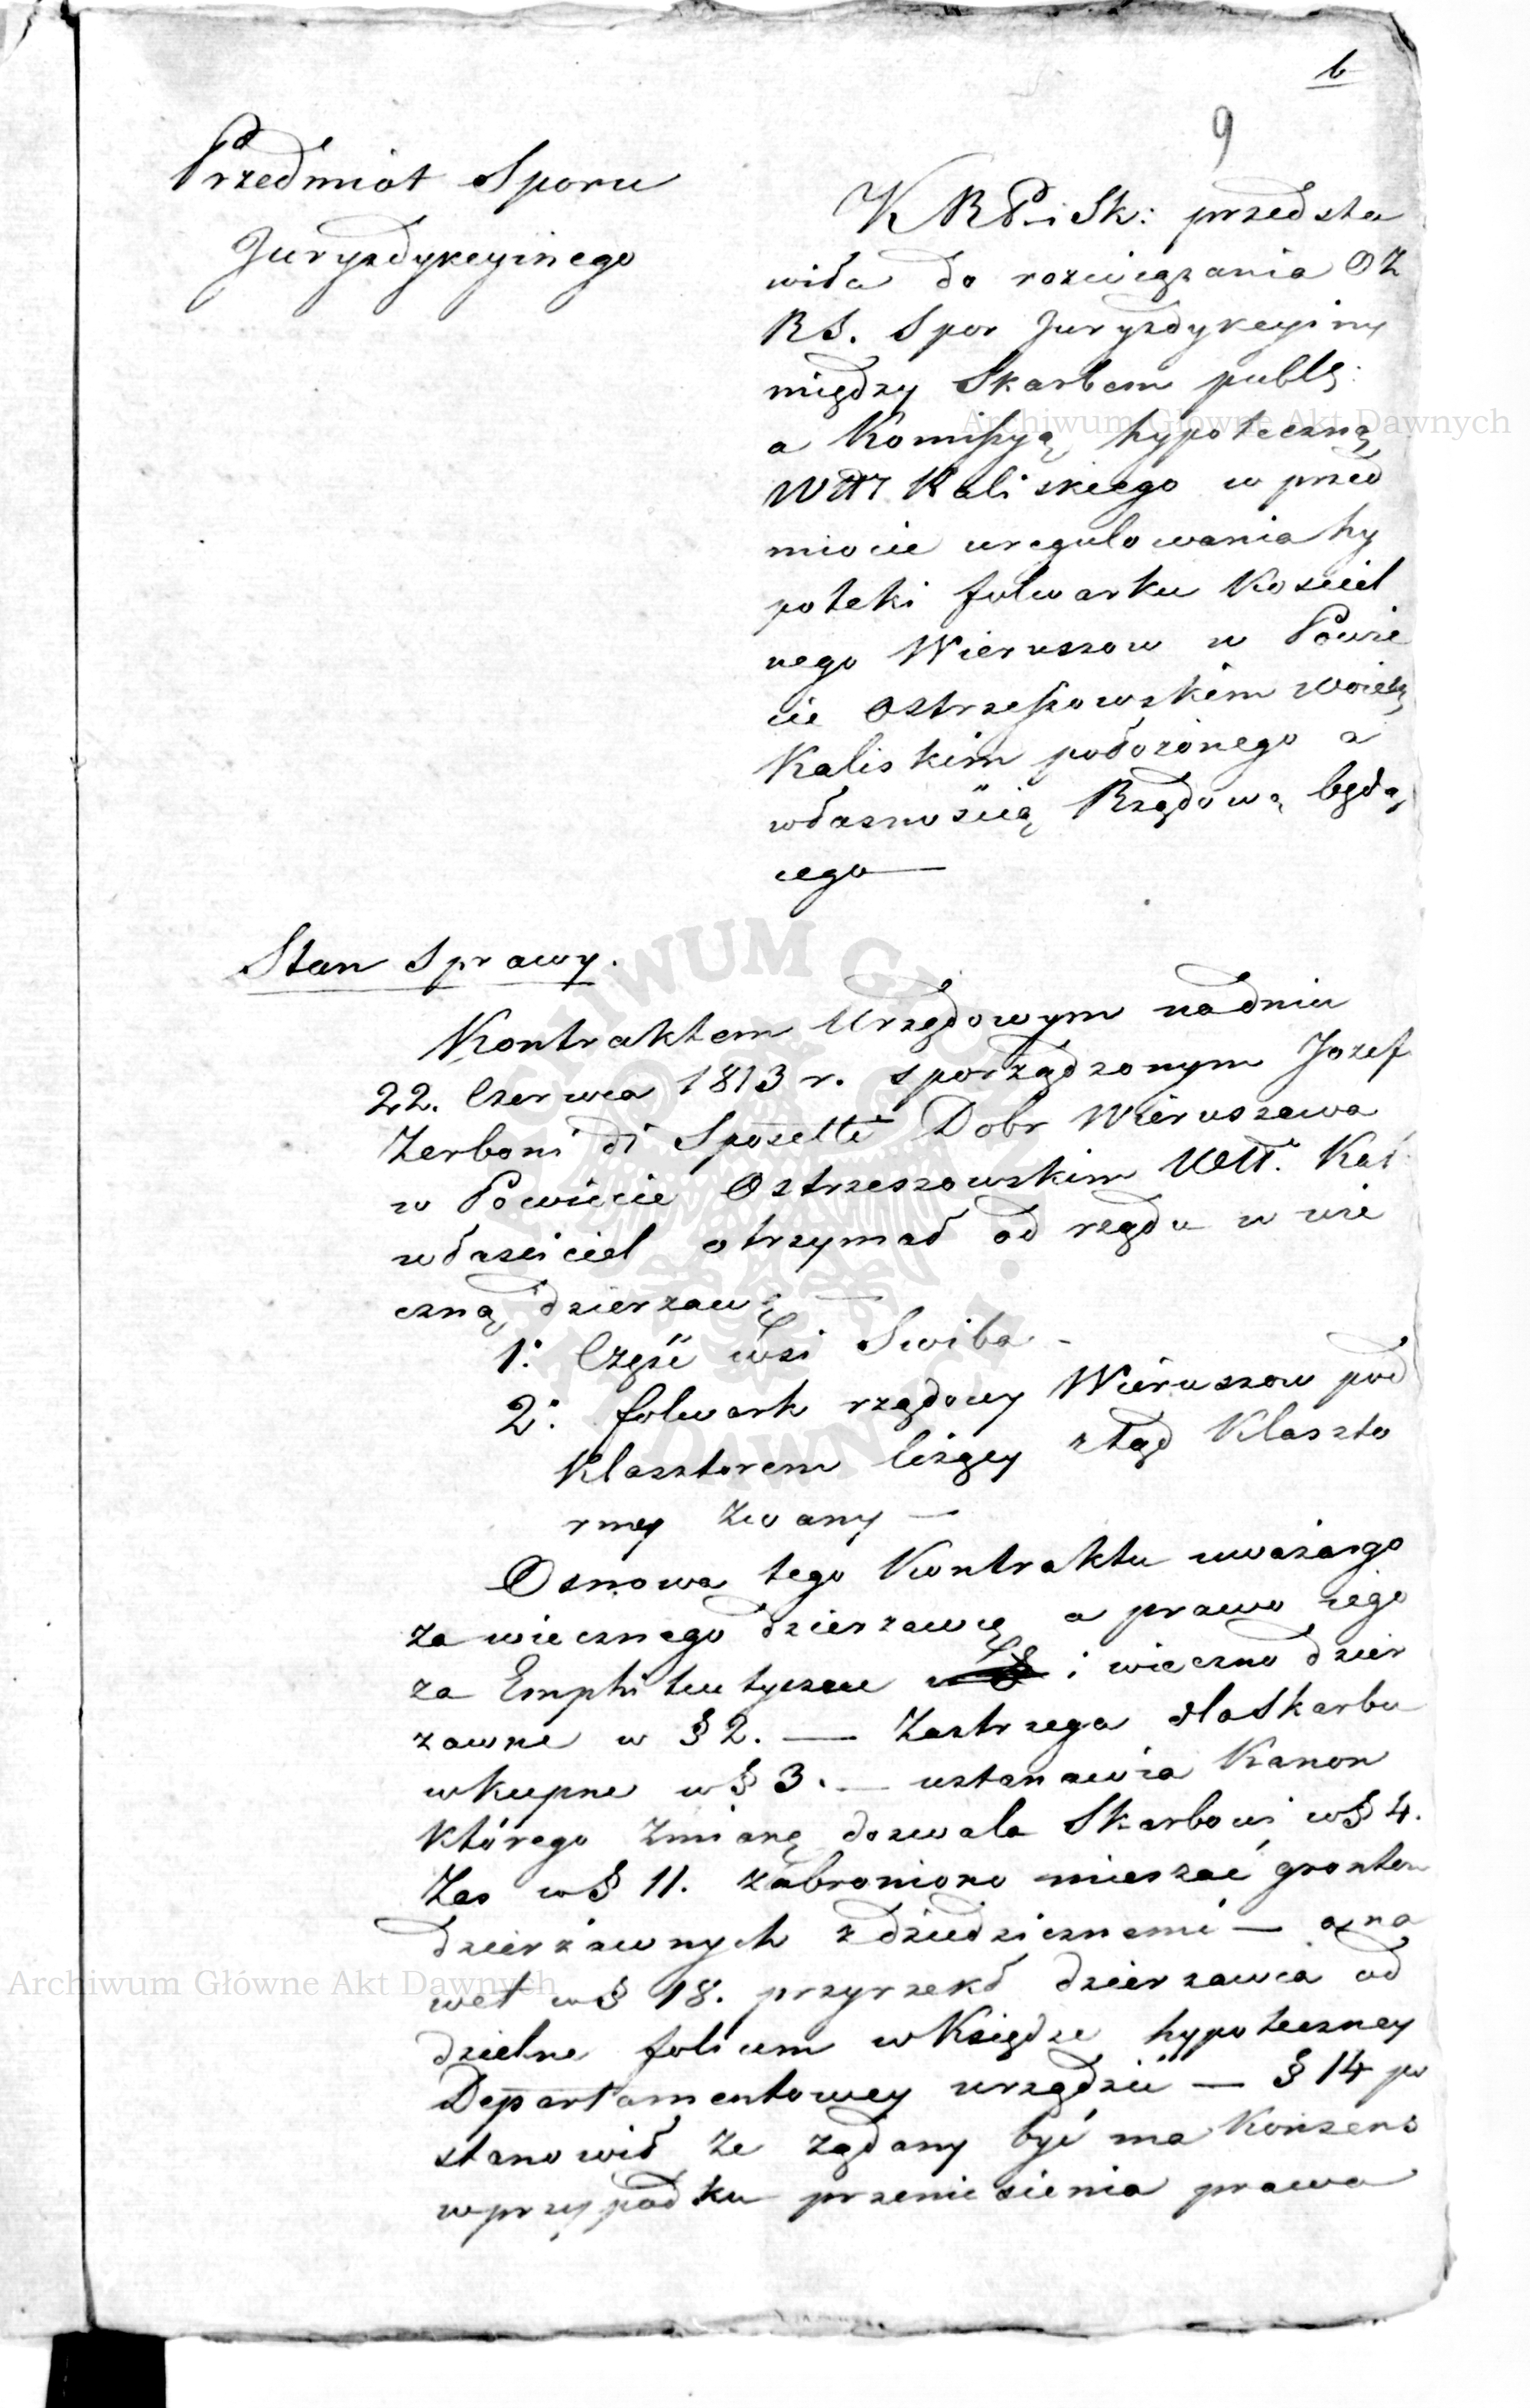 b
9
Przedmiot Sporu
Juryzdykcyinego
K R P i Sk: przedsta
wiła do rozwiązania O Z
R S. Spor Juryzdykcyiny
między Skarbem publ:
a Komissyą hypoteczną
Wtt Kaliskiego w przed
miocie uregulowania hy
poteki folwarku Kościel
nego Wieruszow w Powie
cie Ostrzeszowskim
Kaliskim położonego a
własnością Rządową będą
cego —
Stan Sprawy.
Kontraktem Urzędowym na dniu
22. Czerwca 1813 r. sporządzonym Jozef
Zerboni di Sposetti Dobr Wieruszowa
w Powiecie Ostrzeszowskim Wtt. Kal
właściciel otrzymał od rządu w wie
czną dzierzawę —
1: Część wsi Swiba -
2: folwark rządowy Wieruszow pod
Klasztorem leżący ztąd Klaszto
rney zwany —
Osnowa tego Kontraktu uważa go
za wiecznego dzierzawcę a prawo iego
za Emphiteutyczne i wieczno dzier
zawne w § 2. — Zastrzega dla Skarbu
wkupne w § 3. — ustanawia Kanon
którego zmianę dozwala Skarbowi w § 4.
Zas w § 11. zabroniono mieszać grontow
dzierżawnych z dziedzicznemi — a na
wet w § 18. przyrzekł dzierzawca od
dzielne folium w Księdze hypoteczney
Departamentowey urządzić — § 14 po
stanowił ze ządany być ma Konsens
w przypadku przeniesienia prawa
Archiwum Główne Akt Dawnych
Archiwum Główne Akt Dawnych